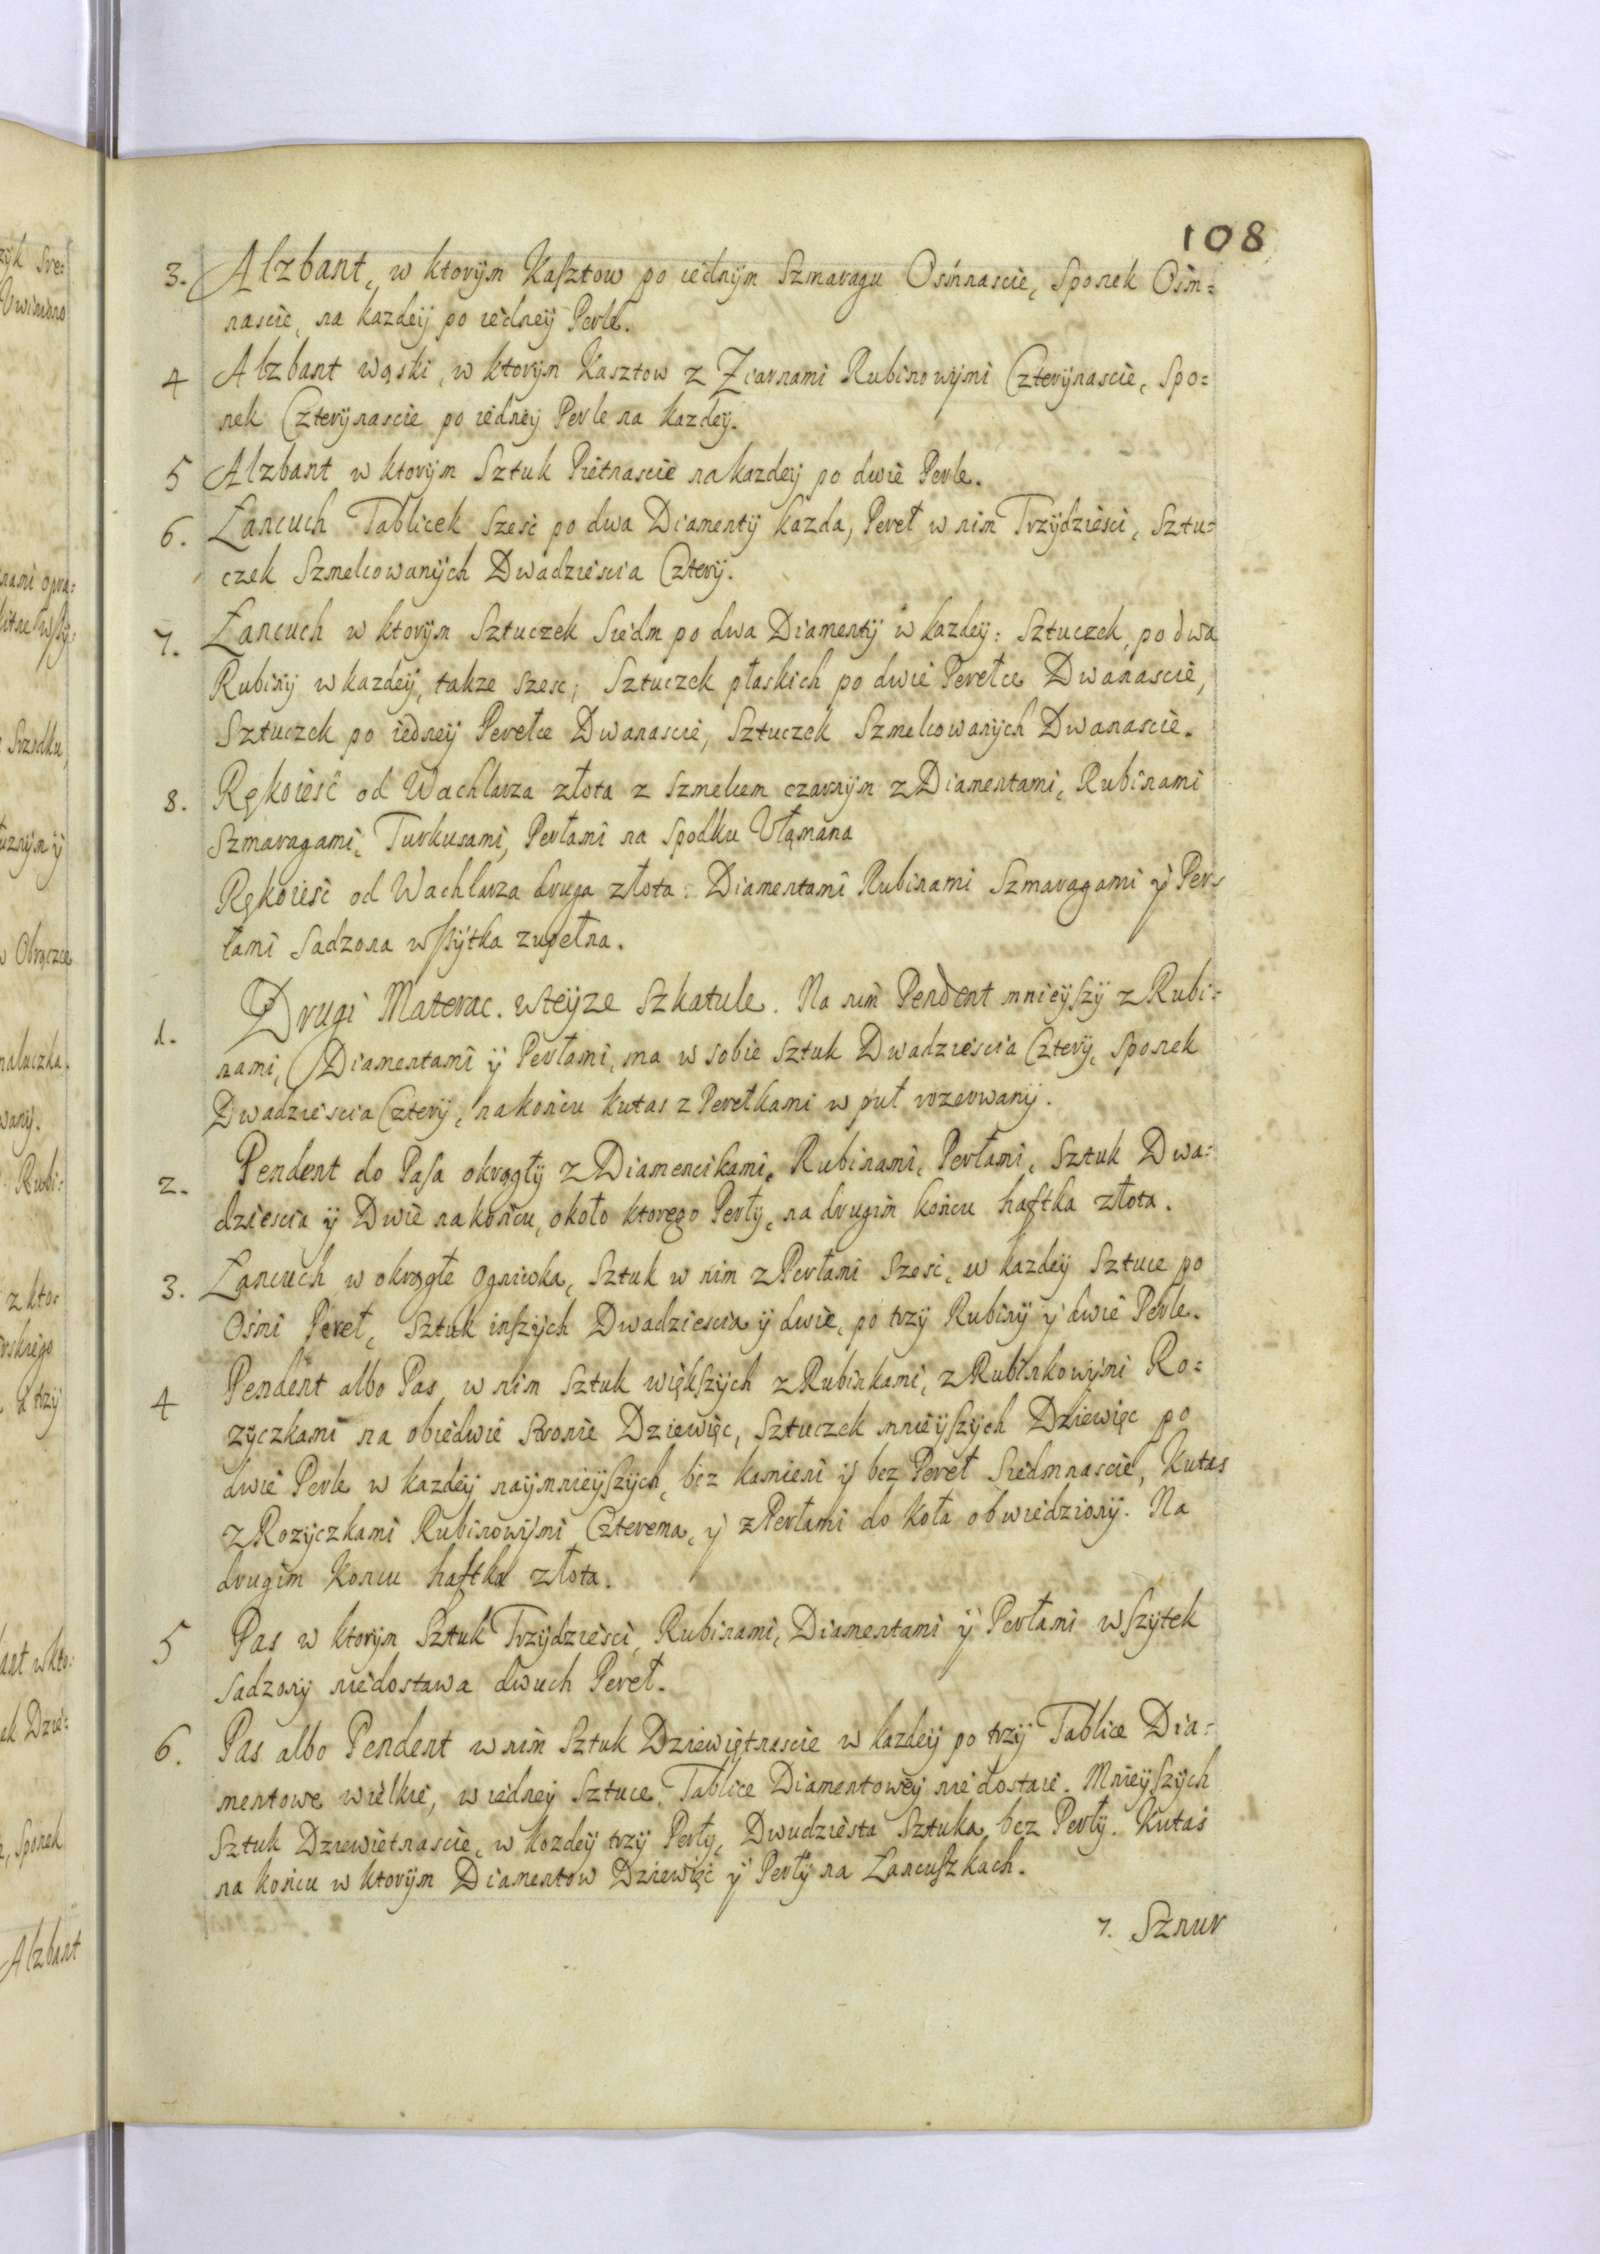 108
3. Alzbant, w ktorÿm Kasztow po iednÿm Szmaragu Osḿnascie, Sponek Osm=
nascie, na kazdeÿ po iedneÿ Perle.
4 Alzbant wąski, w ktorÿm Kasztow z Ziarnami Rubinowÿmi Czterÿnascie, Spo=
nek Czterÿnascie po iedneÿ Perle na kazdeÿ.
5 Alzbant w ktorÿm Sztuk Pietnascie na kazdeÿ po dwie Perle.
6. Łancuch Tablicek Szesc po dwa Diamentÿ kazda, Pereł w nim Trzÿdziesci, Sztu=
czek Szmelcowanÿch Dwadziescia Czterÿ.
7. Łancuch w ktorÿm Sztuczek Siedm po dwa Diamentÿ w kazdeÿ: Sztuczek, po dwa
Rubinÿ w kazdeÿ, takze szesc; Sztuczek płaskich po dwie Perełce Dwanascie,
Sztuczek po iedneÿ Perełce Dwanascie, Sztuczek Szmelcowanÿch Dwanascie.
8. Rękoiesc od Wachlarza złota z szmelcem czarnÿm z Diamentami, Rubinami
Szmaragami, Turkusami, Perłami na spodku Vłamana
Rękoiesc od Wachlarza druga złota: Diamentami Rubinami Szmaragami ÿ Per=
łami sadzona wszÿtka zupełna.
Drugi Materac. wteÿze Szkatule. Na nim Pendent mnieÿszÿ z Rubi=
1. nami, Diamentami ÿ Perłami, ma w sobie sztuk Dwadziescia Czterÿ, Sponek
Dwadziescia Czterÿ, na koncu kutas z Perełkami w puł rozerwanÿ.
2. Pendent do Pasa okrągłÿ z Diamencikami, Rubinami, Perłami, Sztuk Dwa=
dziescia ÿ Dwie na koncu, około ktorego Perłÿ, na drugim koncu haftka złota.
3. Łancuch w okrągłe Ogniwka, Sztuk w nim z Perłami szesc, w kazdeÿ Sztuce po
Osmi Pereł, Sztuk inszÿch Dwadziescia ÿ dwie, po trzÿ Rubinÿ ÿ dwie Perle.
4 Pendent albo Pas w nim sztuk większÿch z Rubinkami, z Rubinkowÿmi Ro=
zÿczkami na obiedwie stronie Dziewięc, Sztuczek mnieÿszÿch Dziewięc po
dwie Perle w kazdeÿ naÿmnieÿszÿch, bez kamieni ÿ bez Pereł Siedmnascie, Kutas
z Rozÿczkami Rubinowÿmi Czterema, ÿ z Perłami do koła obwiedzionÿ. Na
drugim koncu haftka złota.
5 Pas w ktorÿm Sztuk Trzÿdziesci, Rubinami, Diamentami ÿ Perłami wszÿtek
sadzonÿ niedostawa dwuch Pereł.
6. Pas albo Pendent w nim Sztuk Dziewiętnascie w kazdeÿ po trzÿ Tablice Dia=
mentowe wielkie, w iedneÿ Sztuce Tablice Diamentoweÿ nie dostaie. Mnieÿszÿch
Sztuk Dziewietnascie, w kozdeÿ trzÿ Perłÿ, Dwudziesta Sztuka bez Perłÿ. Kutas
na koncu w ktorÿm Diamentow Dziewięc ÿ Perłÿ na Łancuszkach.
7. Sznur